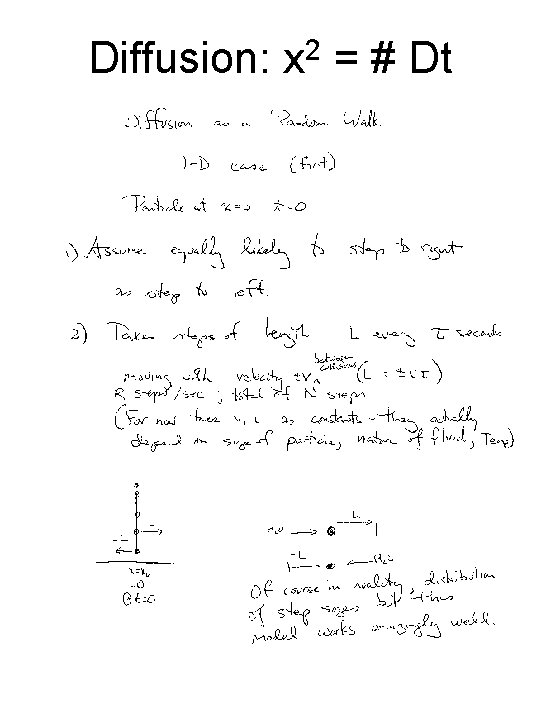 Diffusion: x² = # Dt
Diffusion as a Random Walk
1-D case (first)
Particle at x=0 t=0
1) Assume equally likely to step to right
as step to left.
2) Takes steps of length L every τ seconds
moving with velocity ±v between collisions (L = ±vτ)
R steps/sec; total of N steps
(For now these v, L as constants - they actually
depend on size of particle, nature of fluid, Temp)
-L
L
-L
=0
@ t=0
Of course in reality, distribution
of step sizes but this
model works amazingly well.